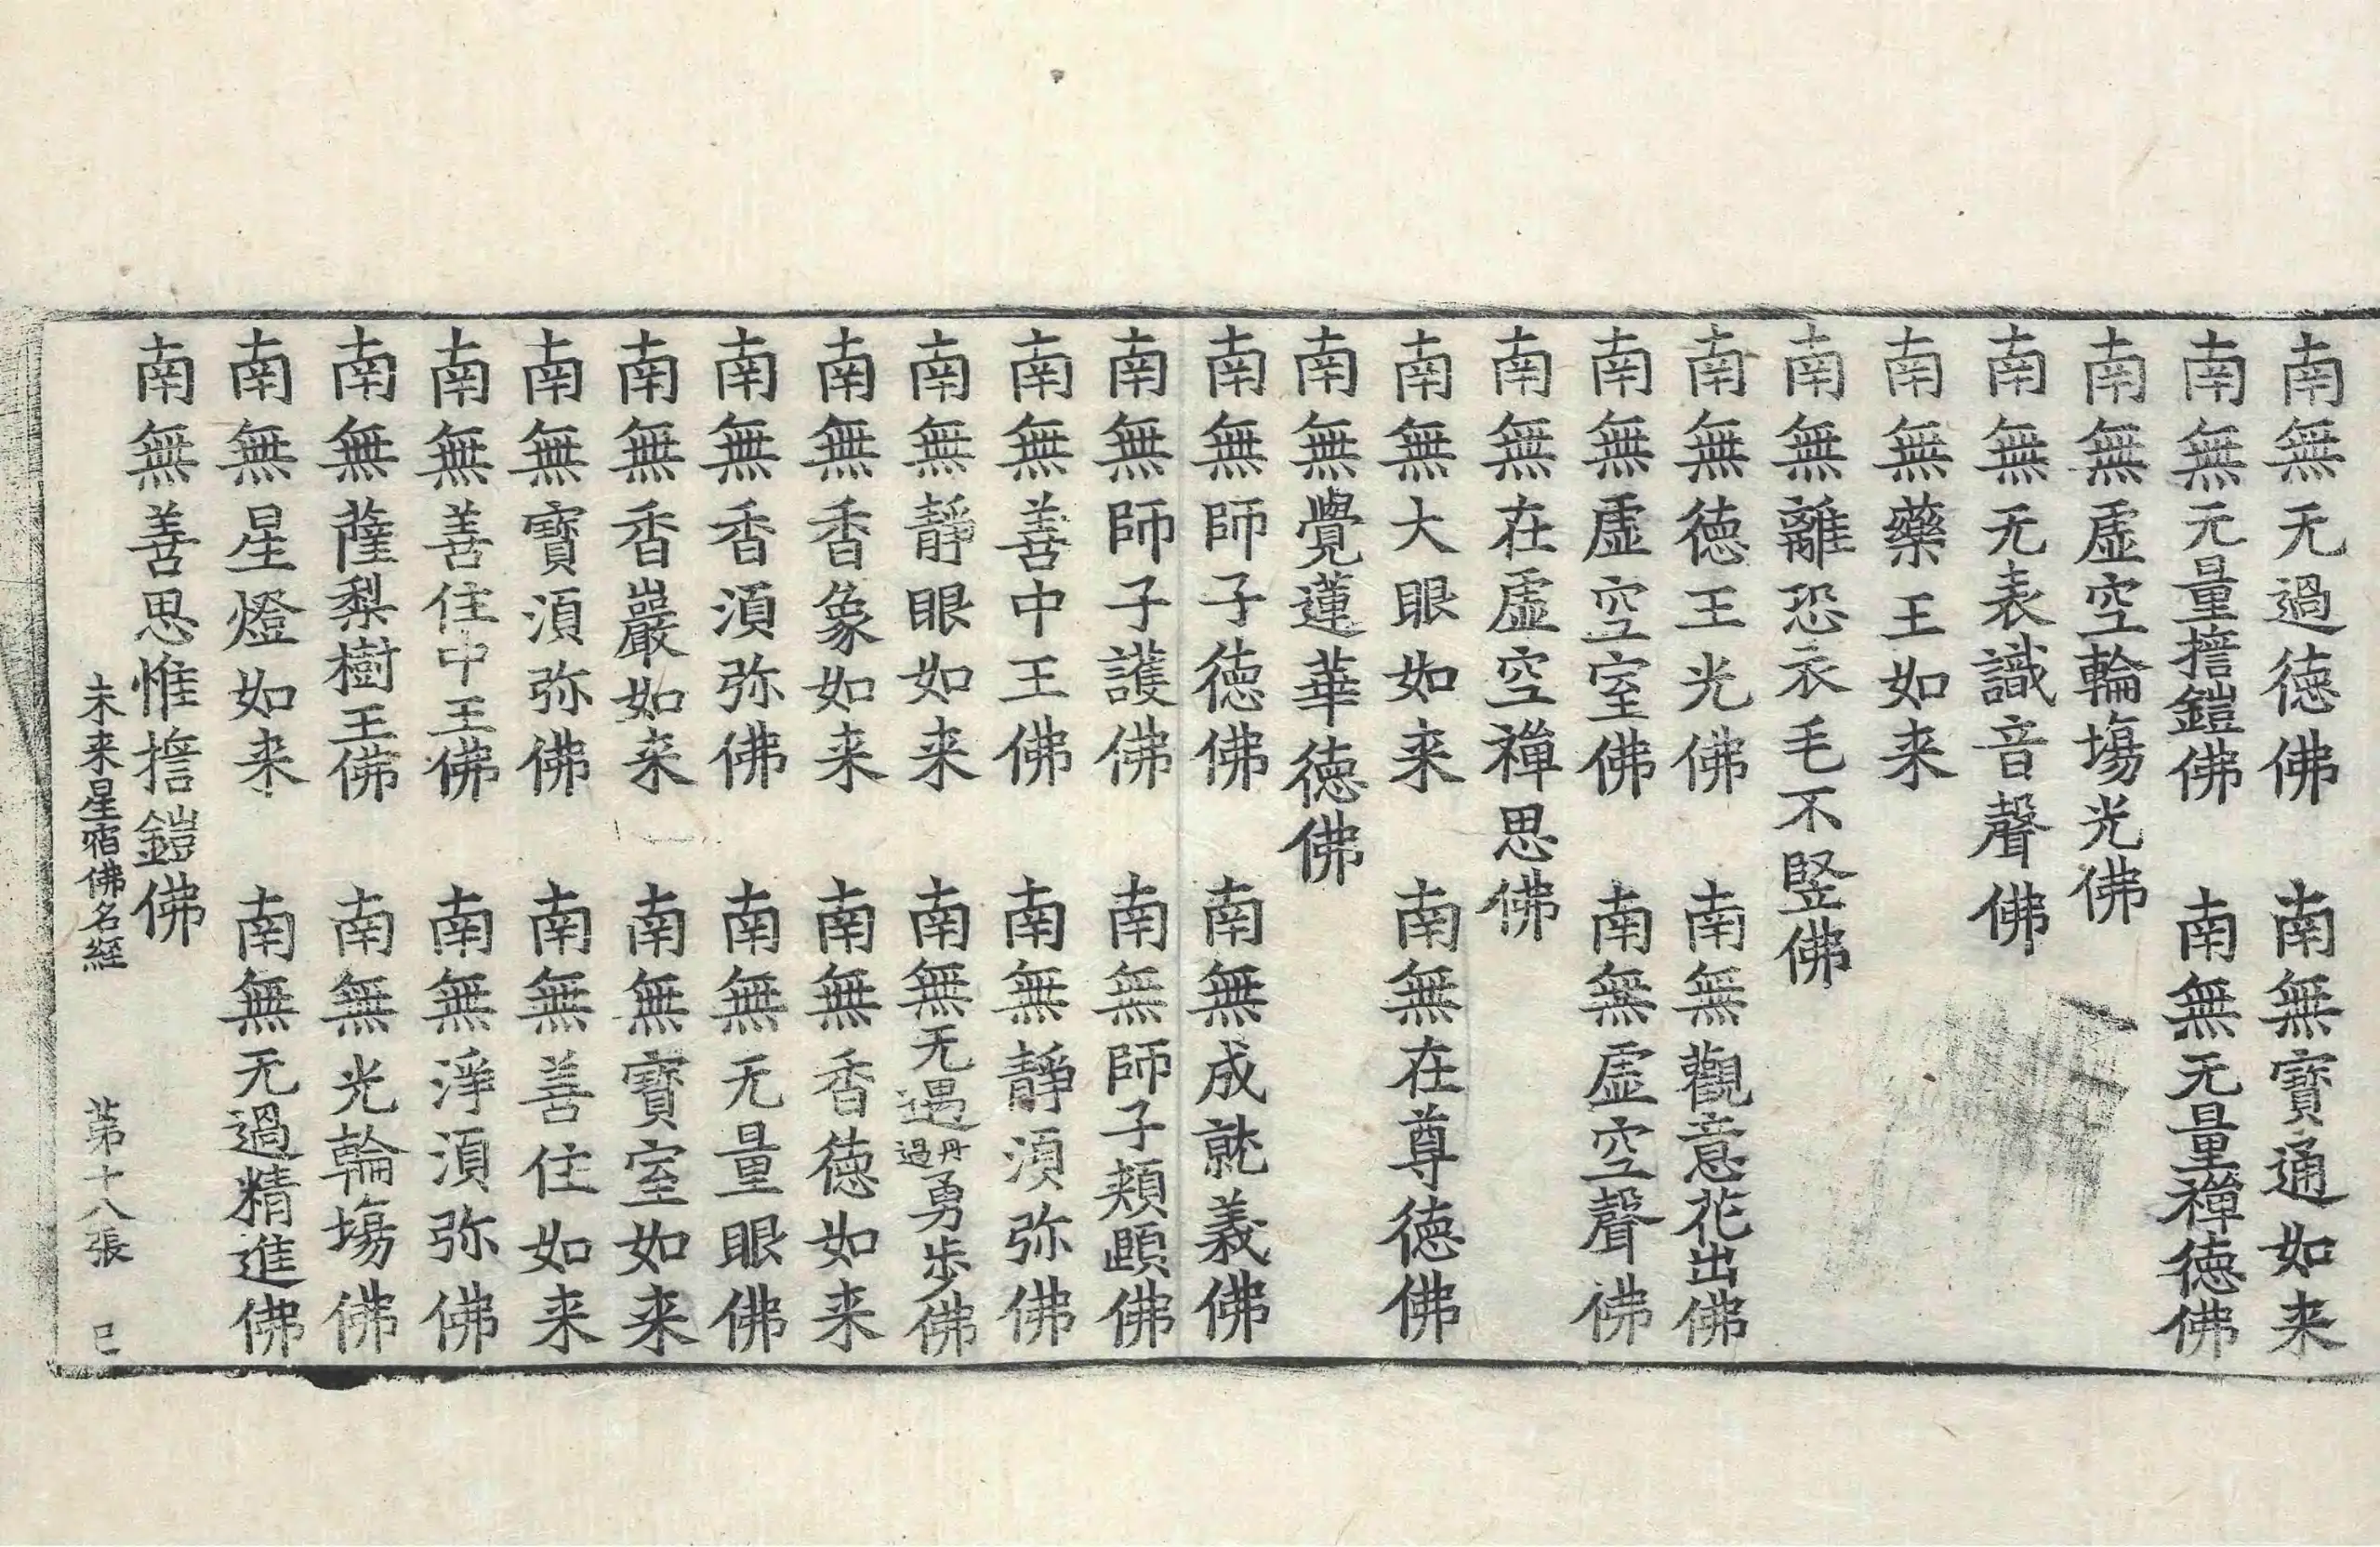 南無无過德佛　南無寶通如来
南無无量㩉鎧佛　南無无量禪德佛
南無虛空輪塲光佛
南無无表識音聲佛
南無藥王如来
南無離恐衣毛不竪佛
南無德王光佛　南無觀意花出佛
南無虛空室佛　南無虛空聲佛
南無在虛空禪思佛
南無大眼如来　南無在尊德佛
南無覺蓮華德佛
南無師子德佛　南無成就義佛
南無師子護佛　南無師子頰頤佛
南無善中王佛　南無靜湏弥佛
南無靜眼如来　南無无遇丹過勇步佛
南無香象如来　南無香德如来
南無香湏弥佛　南無无量眼佛
南無香巖如来　南無寶室如来
南無寶湏弥佛　南無善住如来
南無善住中王佛　南無淨湏弥佛
南無薩梨樹王佛　南無光輪塲佛
南無星燈如来　南無无過精進佛
南無善思惟㩉鎧佛
未来星宿佛名經　苐十八張　己